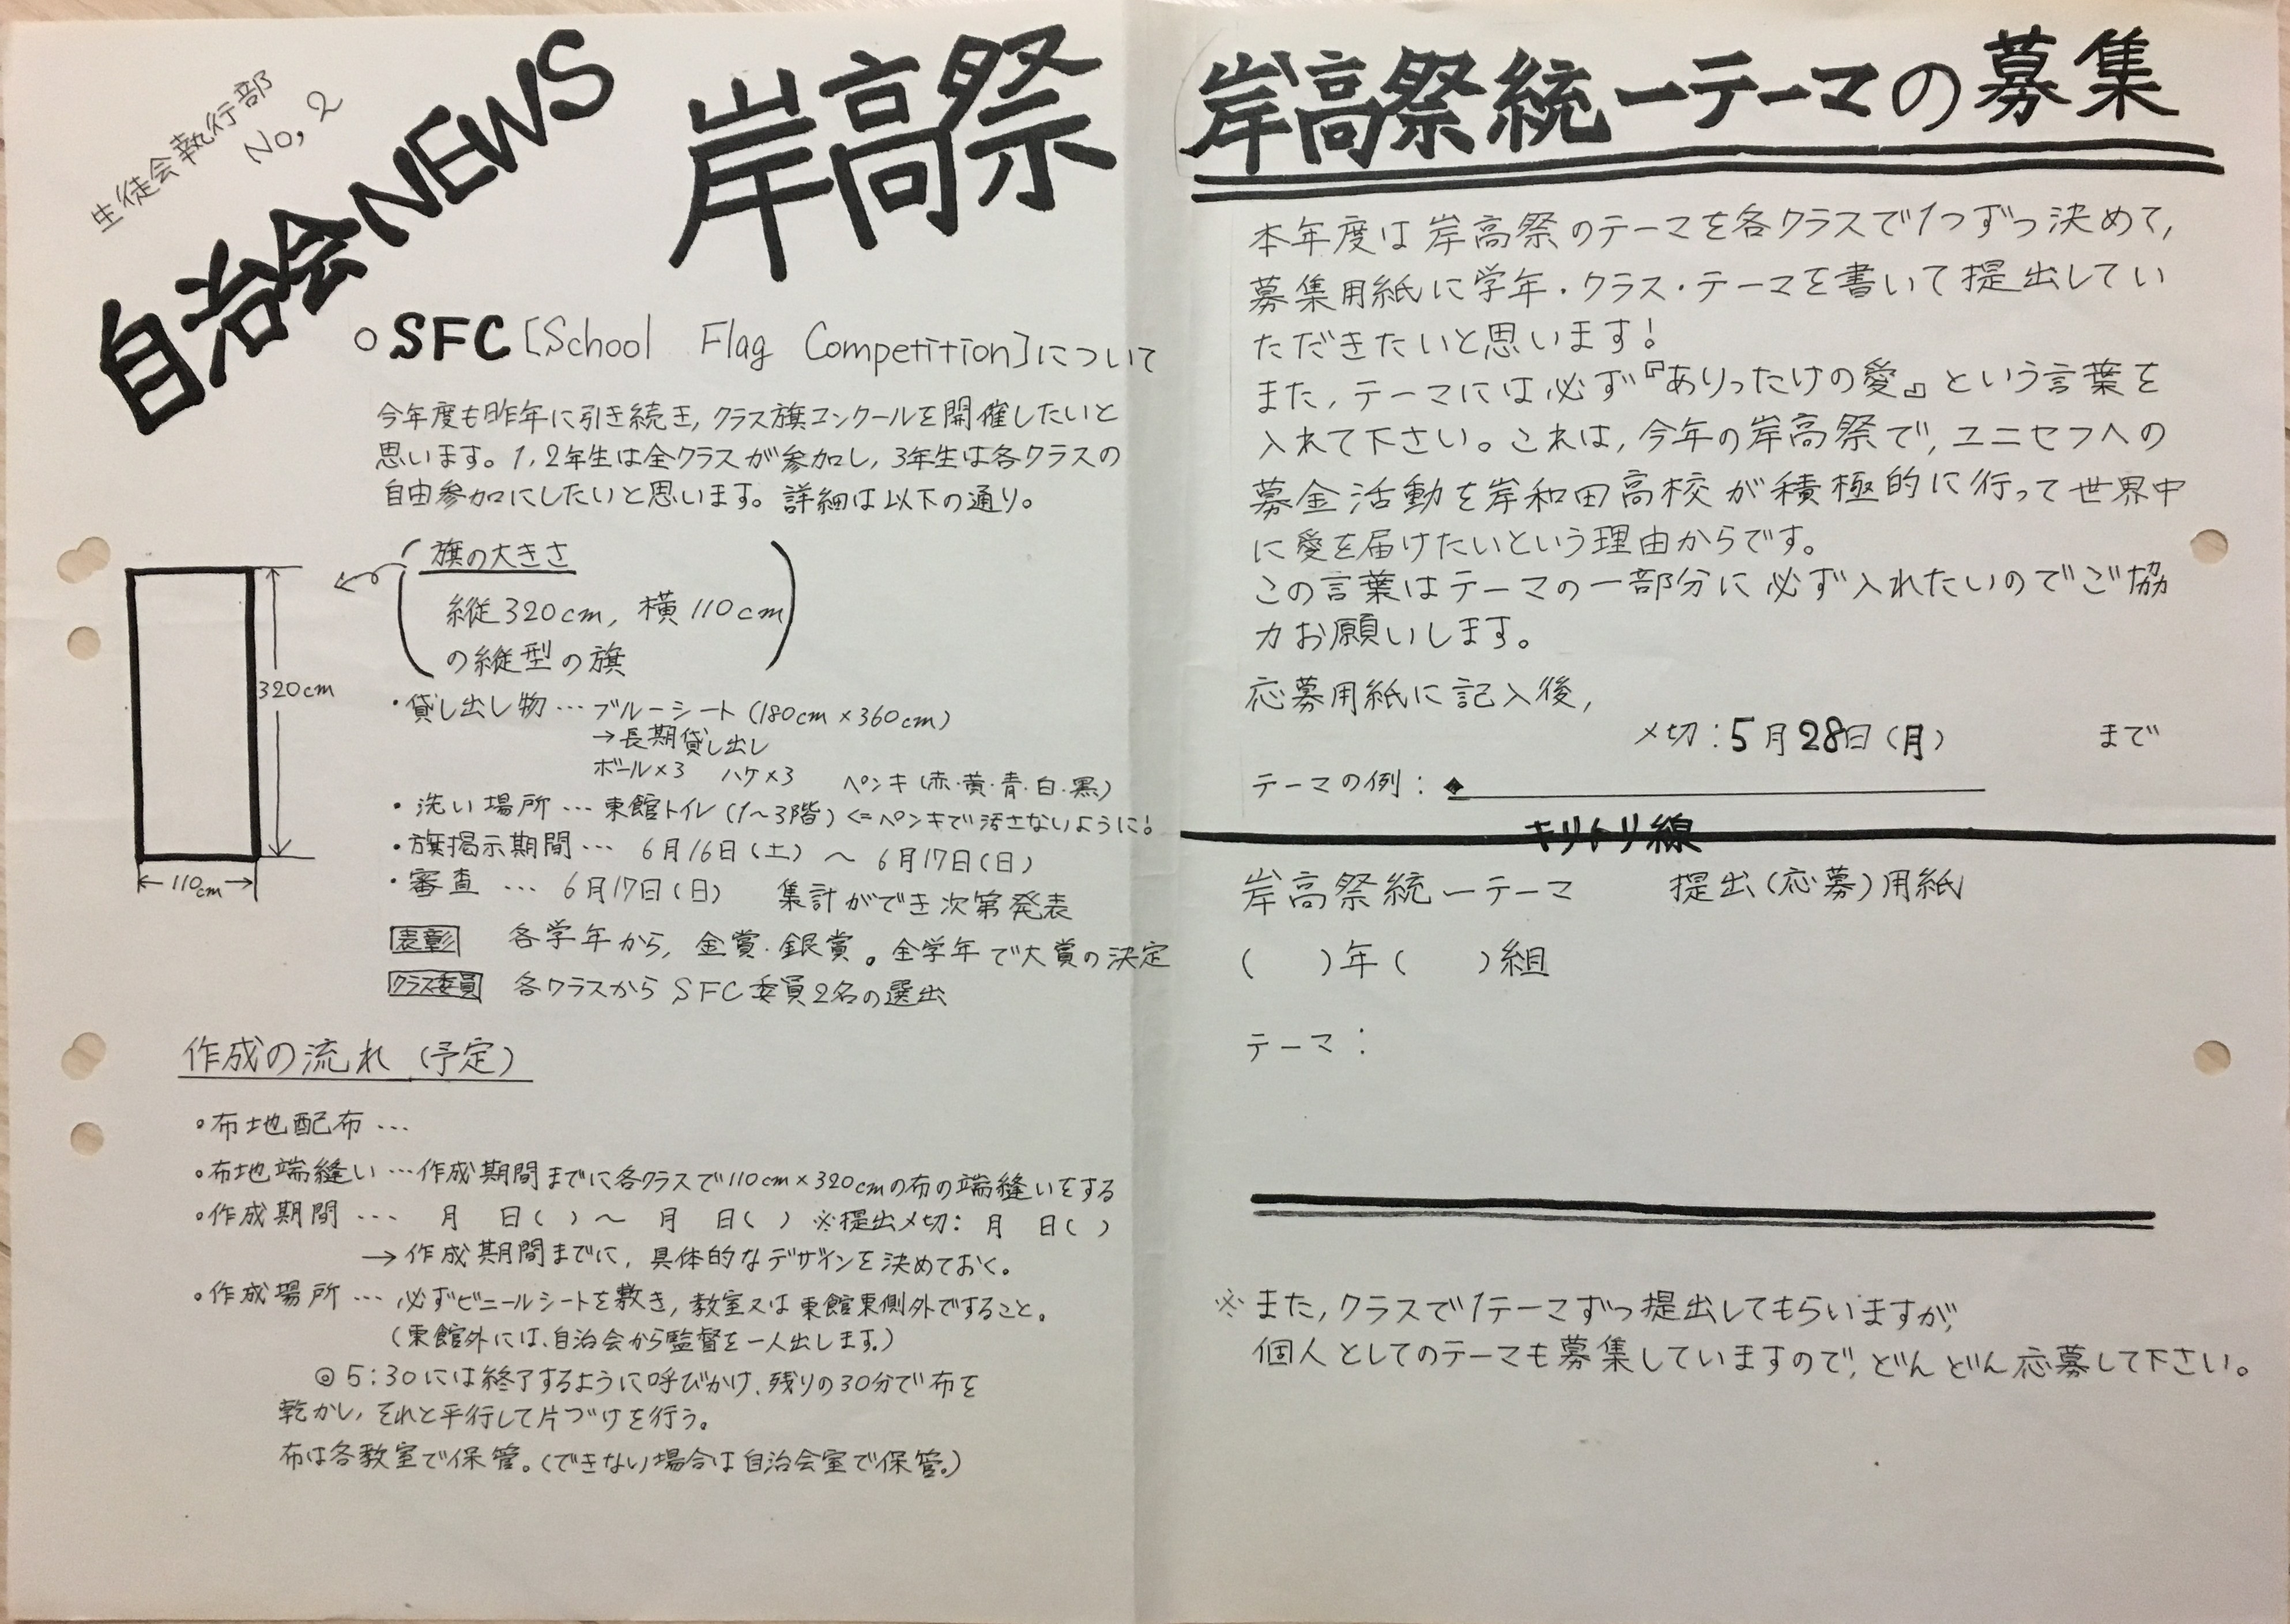 生徒会執行部
No,2
自治会NEWS
岸高祭
○SFC[School Flag Competition]について
今年度も昨年に引き続き,クラス旗コンクールを開催したいと
思います。1,2年生は全クラスが参加し,3年生は各クラスの
自由参加にしたいと思います。詳細は以下の通り。
旗の大きさ
縦320cm,横110cm
の縦型の旗
320cm
110cm
・貸し出し物…ブルーシート(180cm×360cm)
→長期貸し出し
ボール×3 ハケ×3 ペンキ(赤・黄・青・白・黒)
・洗い場所…東館トイレ(1~3階)⇐ペンキで汚さないように!
・旗掲示期間… 6月16日(土)~6月17日(日)
・審査… 6月17日(日) 集計ができ次第発表
表彰 各学年から,金賞・銀賞。全学年で大賞の決定
クラス委員 各クラスからSFC委員2名の選出
作成の流れ(予定)
・布地配布…
・布地端縫い…作成期間までに各クラスで110cm×320cmの布の端縫いをする
・作成期間… 月 日( )~ 月 日( ) ※提出〆切: 月 日( )
→作成期間までに,具体的なデザインを決めておく。
・作成場所…必ずビニールシートを敷き,教室又は東館東側外ですること。
(東館外には、自治会から監督を一人出します。)
◎5:30には終了するように呼びかけ、残りの30分で布を
乾かし,それと平行して片づけを行う。
布は各教室で保管。(できない場合は自治会室で保管。)
岸高祭統一テーマの募集
本年度は岸高祭のテーマを各クラスで1つずつ決めて,
募集用紙に学年・クラス・テーマを書いて提出してい
ただきたいと思います!
また,テーマには必ず『ありったけの愛』という言葉を
入れて下さい。これは,今年の岸高祭で,ユニセフへの
募金活動を岸和田高校が積極的に行って世界中
に愛を届けたいという理由からです。
この言葉はテーマの一部分に必ず入れたいのでご協
力お願いします。
応募用紙に記入後,
〆切:5月28日(月) まで
テーマの例:◆
キリトリ線
岸高祭統一テーマ 提出(応募)用紙
( )年( )組
テーマ:
※また,クラスで1テーマずつ提出してもらいますが,
個人としてのテーマも募集していますので,どんどん応募して下さい。